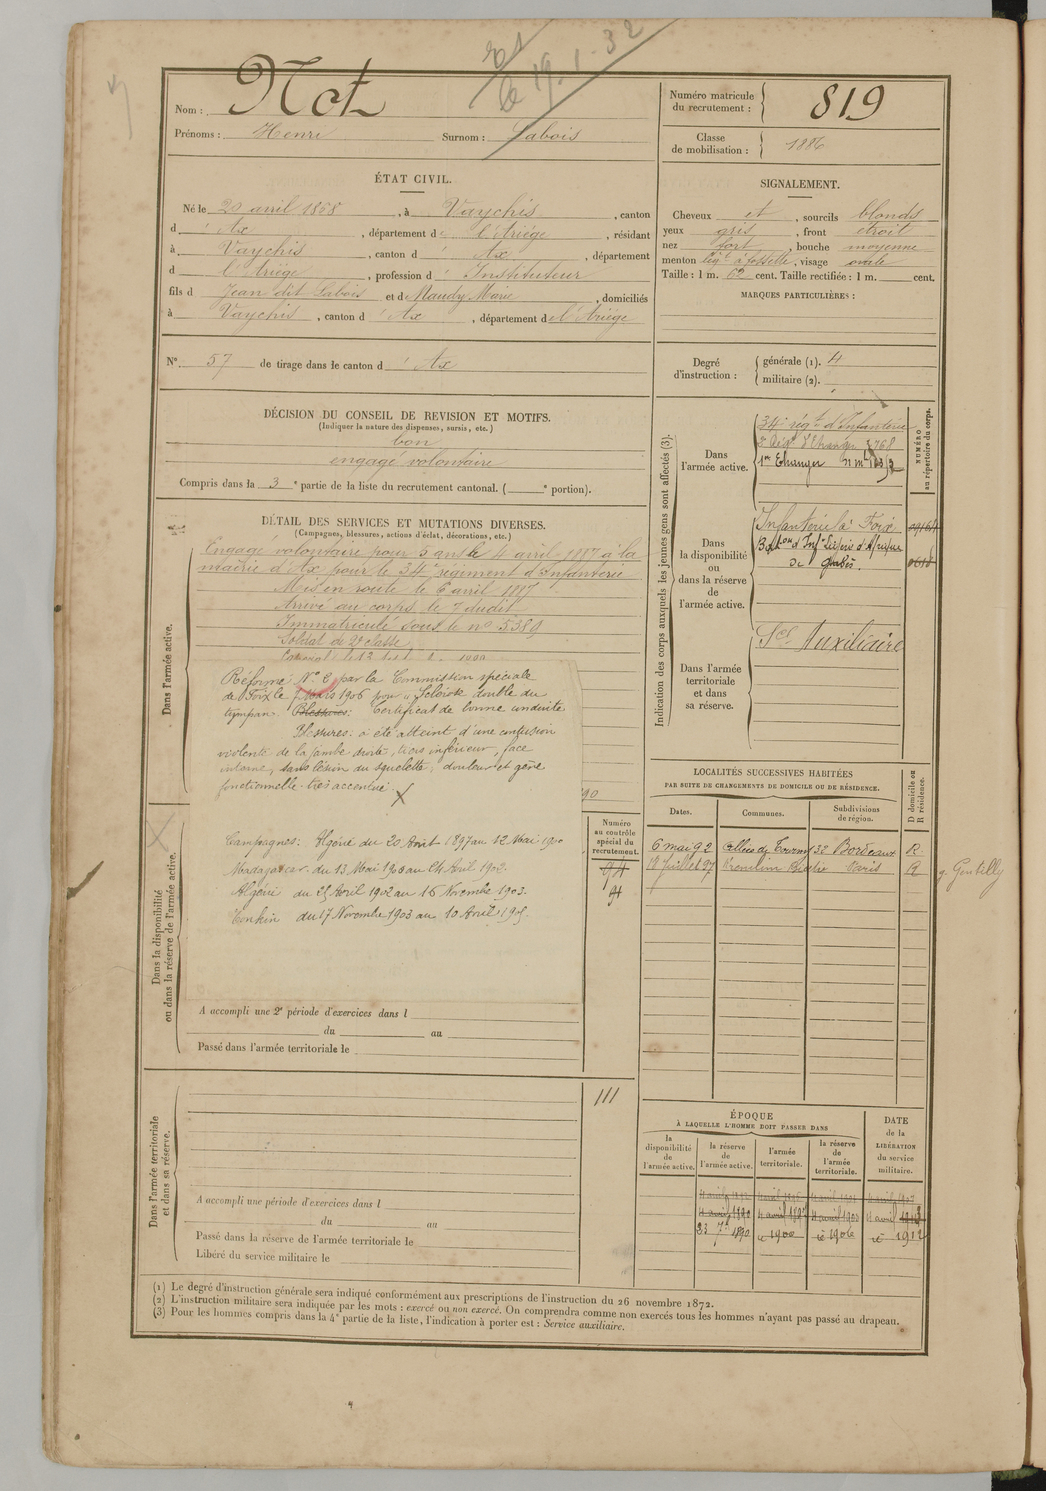 le 19-1-32
Nom : Not
Prénoms : Henri Surnom : Labois
Numéro matricule du recrutement : 819
Classe de mobilisation : 1886
ÉTAT CIVIL.
Né le 20 avril 1868, à Vaychis, canton
d'Ax, département de l'Ariége, résidant
à Vaychis, canton d'Ax, département
d l'Ariége, profession d'Instituteur
fils d Jean dit Labois et de Naudy Marie, domiciliés
à Vaychis, canton d'Ax, département de l'Ariége
N° 57 de tirage dans le canton d'Ax
SIGNALEMENT.
Cheveux et, sourcils blonds
yeux gris, front étroit
nez fort, bouche moyenne
menton à fossette, visage ovale
Taille : 1 m. 62 cent. Taille rectifiée : 1 m. cent.
MARQUES PARTICULIÈRES :
Degré d'instruction : générale (1). 4
militaire (2).
DÉCISION DU CONSEIL DE REVISION ET MOTIFS.
(Indiquer la nature des dispenses, sursis, etc.)
bon
engagé volontaire
Compris dans la 3e partie de la liste du recrutement cantonal. ( e portion).
DÉTAIL DES SERVICES ET MUTATIONS DIVERSES.
(Campagnes, blessures, actions d'éclat, décorations, etc.)
Dans l'armée active.
Engagé volontaire pour 5 ans le 4 avril 1887 à la
mairie d'Ax pour le 34e régiment d'Infanterie
Mis en route le 6 avril 1887
Arrivé au corps le 7 dudit
Immatriculé sous le no 5389
Soldat de 2e classe
Réformé N° 2 par la Commission spéciale
de Foix le 7 Mars 1906 pour Sclérose double du
tympan. Blessures: Certificat de bonne conduite
Blessures: a été atteint d'une contusion
violente de la jambe droite, tiers inférieur, face
interne, sans lésion du squelette; douleur et gêne
fonctionnelle très accentué
X
90
Dans la disponibilité ou dans la réserve de l'armée active.
Campagnes: Algérie du 20 Août 1897 au 12 Mai 1900
Madagascar du 13 Mai 1900 au 24 Avril 1902.
Algérie du 25 Avril 1902 au 16 Novembre 1903.
Tonkin du 17 Novembre 1903 au 10 Avril 1905.
Numéro au contrôle spécial du recrutement.
94
A accompli une 2e période d'exercices dans l
du au
Passé dans l'armée territoriale le
Dans l'armée territoriale et dans sa réserve.
III
A accompli une période d'exercices dans l
du au
Passé dans la réserve de l'armée territoriale le
Libéré du service militaire le
Indication des corps auxquels les jeunes gens sont affectés (3).
NUMÉRO au répertoire du corps.
Dans l'armée active.
34e régt d'Infanterie
2e Régt Etranger 3768
1er Etranger
Dans la disponibilité ou dans la réserve de l'armée active.
Infanterie à Foix
Baton d'Infie légère d'Afrique
de Gabès.
Dans l'armée territoriale et dans sa réserve.
Sce Auxiliaire
LOCALITÉS SUCCESSIVES HABITÉES
PAR SUITE DE CHANGEMENTS DE DOMICILE OU DE RÉSIDENCE.
D domicile ou R résidence.
Dates. Communes. Subdivisions de région.
6 mai 92 Allées de Tourny 32 Bordeaux R
19 Juillet 97 Kremlin Bicêtre Paris R
g. Gentilly
ÉPOQUE
À LAQUELLE L'HOMME DOIT PASSER DANS
la disponibilité de l'armée active.
la réserve de l'armée active.
l'armée territoriale.
la réserve de l'armée territoriale.
DATE de la LIBÉRATION du service militaire.
4 avril 1890 4 avril 1897 4 avril 1903 4 avril 1912
23 7bre 1890 d° 1900 d° 1906 d° 1912
(1) Le degré d'instruction générale sera indiqué conformément aux prescriptions de l'instruction du 26 novembre 1872.
(2) L'instruction militaire sera indiquée par les mots : exercé ou non exercé. On comprendra comme non exercés tous les hommes n'ayant pas passé au drapeau.
(3) Pour les hommes compris dans la 4e partie de la liste, l'indication à porter est : Service auxiliaire.